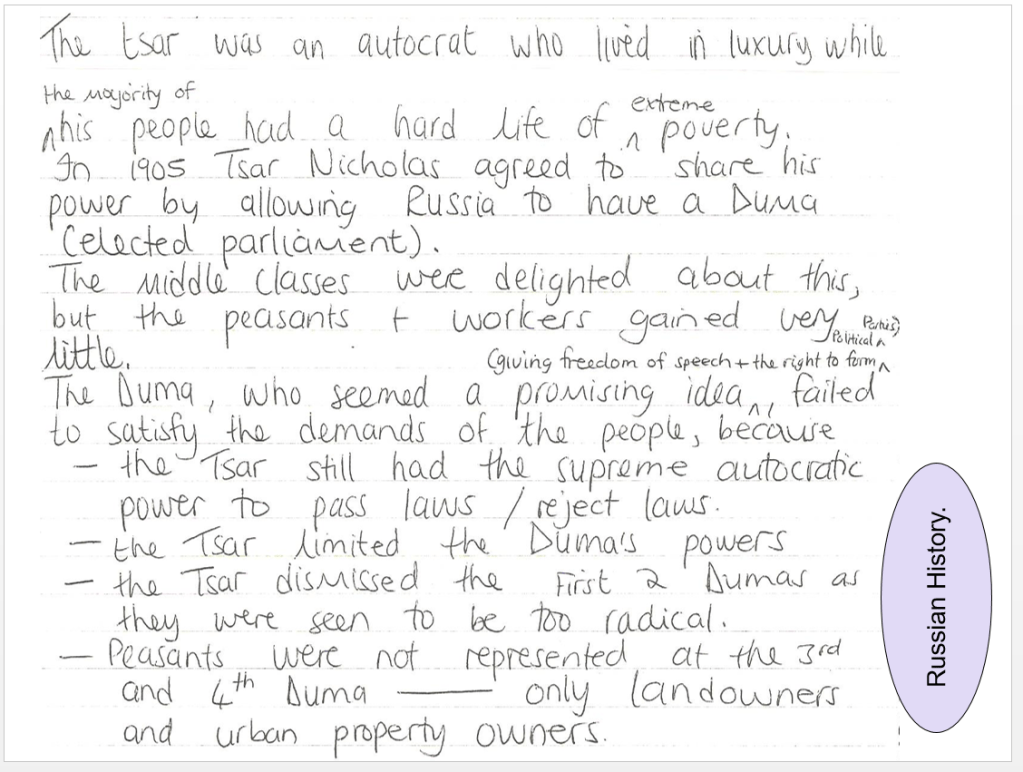 The tsar was an autocrat who lived in luxury while
the majority of
^his people had a hard life of ^ poverty.
extreme
In 1905 Tsar Nicholas agreed to share his
power by allowing Russia to have a Duma
(elected parliament).
The middle classes were delighted about this,
but the peasants + workers gained very
little.
Political ^ Parties)
(giving freedom of speech + the right to form ^
The Duma, who seemed a promising idea ^, failed
to satisfy the demands of the people, because
– the Tsar still had the supreme autocratic
power to pass laws / reject laws.
– the Tsar limited the Duma's powers
– the Tsar dismissed the First 2 Dumas as
they were seen to be too radical.
– Peasants were not represented at the 3rd
and 4th Duma —— only landowners
and urban property owners.
Russian History.